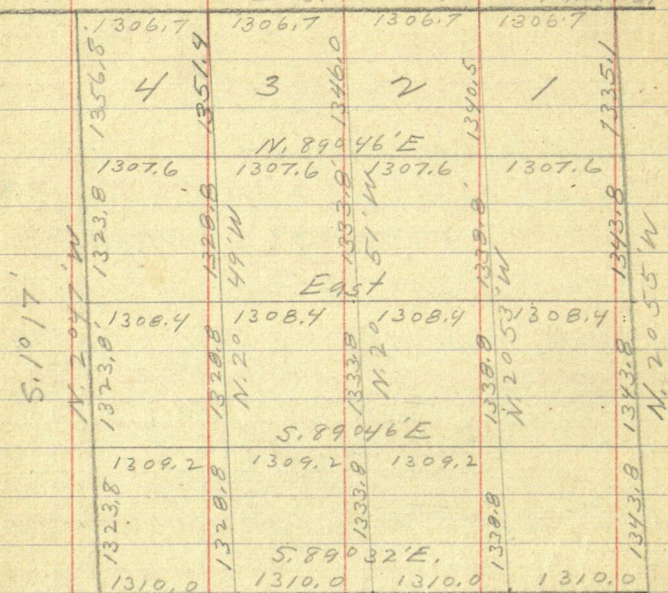 1306.7 1306.7 1306.7 1306.7
1356.8 4 1351.4 3 1346.0 2 1340.5 1 1335.1
N. 89° 46' E
1307.6 1307.6 1307.6 1307.6
1323.8 1328.8 1333.8 1338.8 1343.8
East
S. 1° 17' N. 2° 47' W N. 2° 49' W N. 2° 51' W N. 2° 53' W N. 2° 55' W
1308.4 1308.4 1308.4 1308.4
1323.8 1328.8 1333.8 1338.8 1343.8
S. 89° 46' E
1309.2 1309.2 1309.2
1323.8 1328.8 1333.8 1338.8 1343.8
S. 89° 32' E.
1310.0 1310.0 1310.0 1310.0